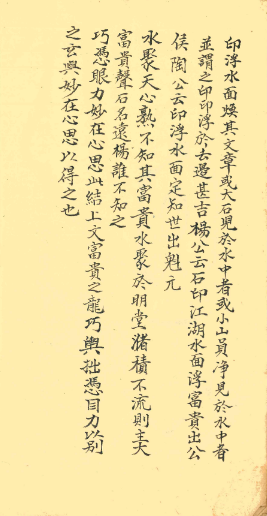 印浮水面煥其文章或大石見於水中者或小山員净見於水中者
並謂之印印浮於去邊甚吉楊公云石印江湖水面浮富貴出公
侯陶公云印浮水面定知世出魁元
水聚天心熟不知其富貴水聚於明堂潴積不流則主大
富貴聲石名遠楊誰不知之
巧憑眼力妙在心思此結上文富貴之龍巧與拙憑目力以別
之玄與妙在心思以得之也